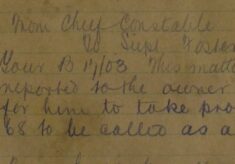 From Chief Constable
To Supt Foster
Your B 17/03 This matte
reported to the owner
for him to take pro
68 to be called as a